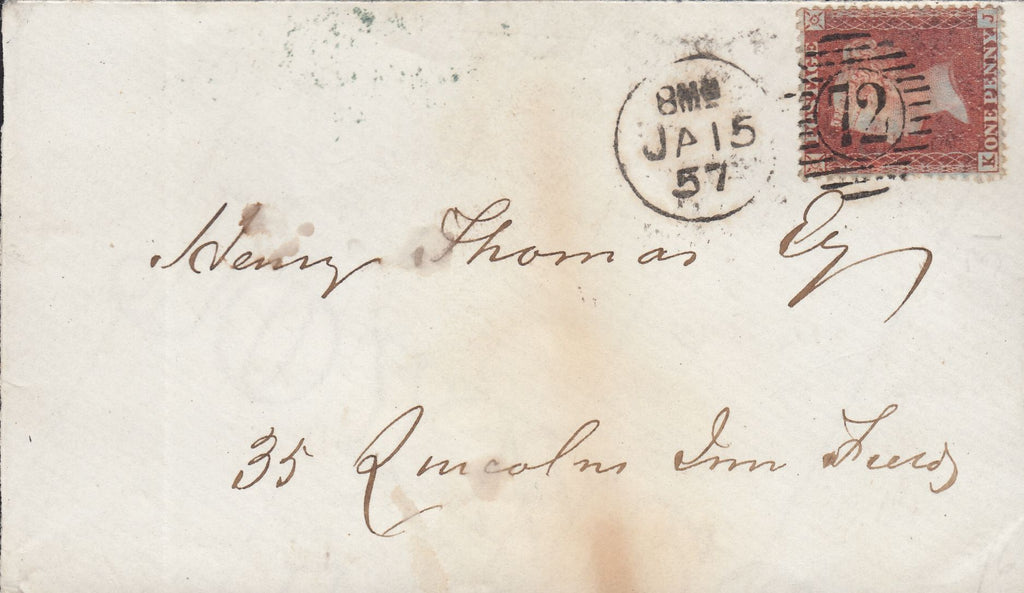 8MN
JA 15
57
12
POSTAGE
ONE PENNY
K J
Henry Thomas Esq
35 Lincolns Inn Fields